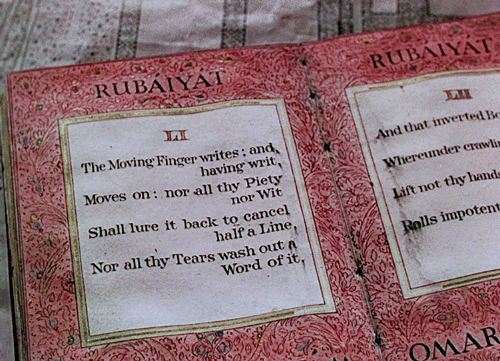 RUBÁIYAT
LI
The Moving Finger writes; and,
having writ,
Moves on: nor all thy Piety
nor Wit
Shall lure it back to cancel
half a Line,
Nor all thy Tears wash out a
Word of it.
RUBÁIYAT
LII
And that inverted
Whereunder
Lift not thy hands
Rolls impotent
OMAR